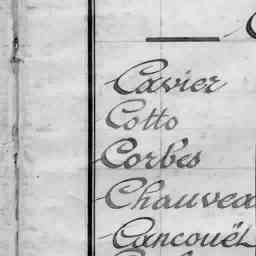 Cavier
Cotto
Corbes
Chauvea
Cancouët